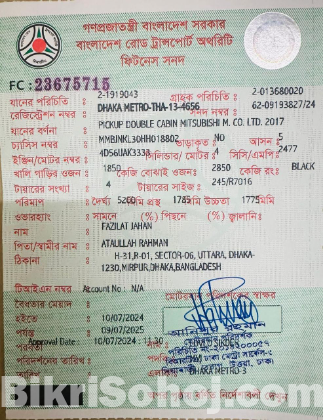 গণপ্রজাতন্ত্রী বাংলাদেশ সরকার
বাংলাদেশ রোড ট্রান্সপোর্ট অথরিটি
ফিটনেস সনদ
FC : 23675715
যানের পরিচিতি : 2-1919043 গ্রাহক পরিচিতি : 2-013680020
রেজিস্ট্রেশন নম্বর : DHAKA METRO-THA-13-4656 সনদ নম্বর : 62-09193827/24
যানের বর্ণনা : PICKUP DOUBLE CABIN MITSUBISHI M. CO. LTD. 2017
চ্যাসিস নম্বর : MMBJNKL30HH018802 ভাড়াকৃত NO আসন 5
ইঞ্জিন/মোটর নম্বর : 4D56UAK3333 সিলিন্ডার/মোটর 4 সিসি/এমপি 2477
খালি গাড়ির ওজন : 1850 কেজি বোঝাই ওজন: 2850 কেজি রং: BLACK
টায়ারের সংখ্যা : 4 টায়ারের সাইজ: 245/R7016
পরিমাপ : দৈর্ঘ্য 5200 মিমি প্রস্থ 1785 মিমি উচ্চতা 1775 মিমি
ওভারহ্যাং : সামনে (%) পিছনে (%) জ্বালানি:
নাম : FAZILAT JAHAN
পিতা/স্বামীর নাম : ATAULLAH RAHMAN
ঠিকানা : H-31,R-01, SECTOR-06, UTTARA, DHAKA-
1230,MIRPUR,DHAKA,BANGLADESH
টিআইএন নম্বর Account No : N/A
বৈধতার মেয়াদ মোটরযান পরিদর্শকের স্বাক্ষর
হইতে : 10/07/2024
পর্যন্ত : 09/07/2025
Approval Date : 10/07/2024 : 11:30
পরিদর্শনের তারিখ :
DHAKA METRO-3
BikriSohoj.com